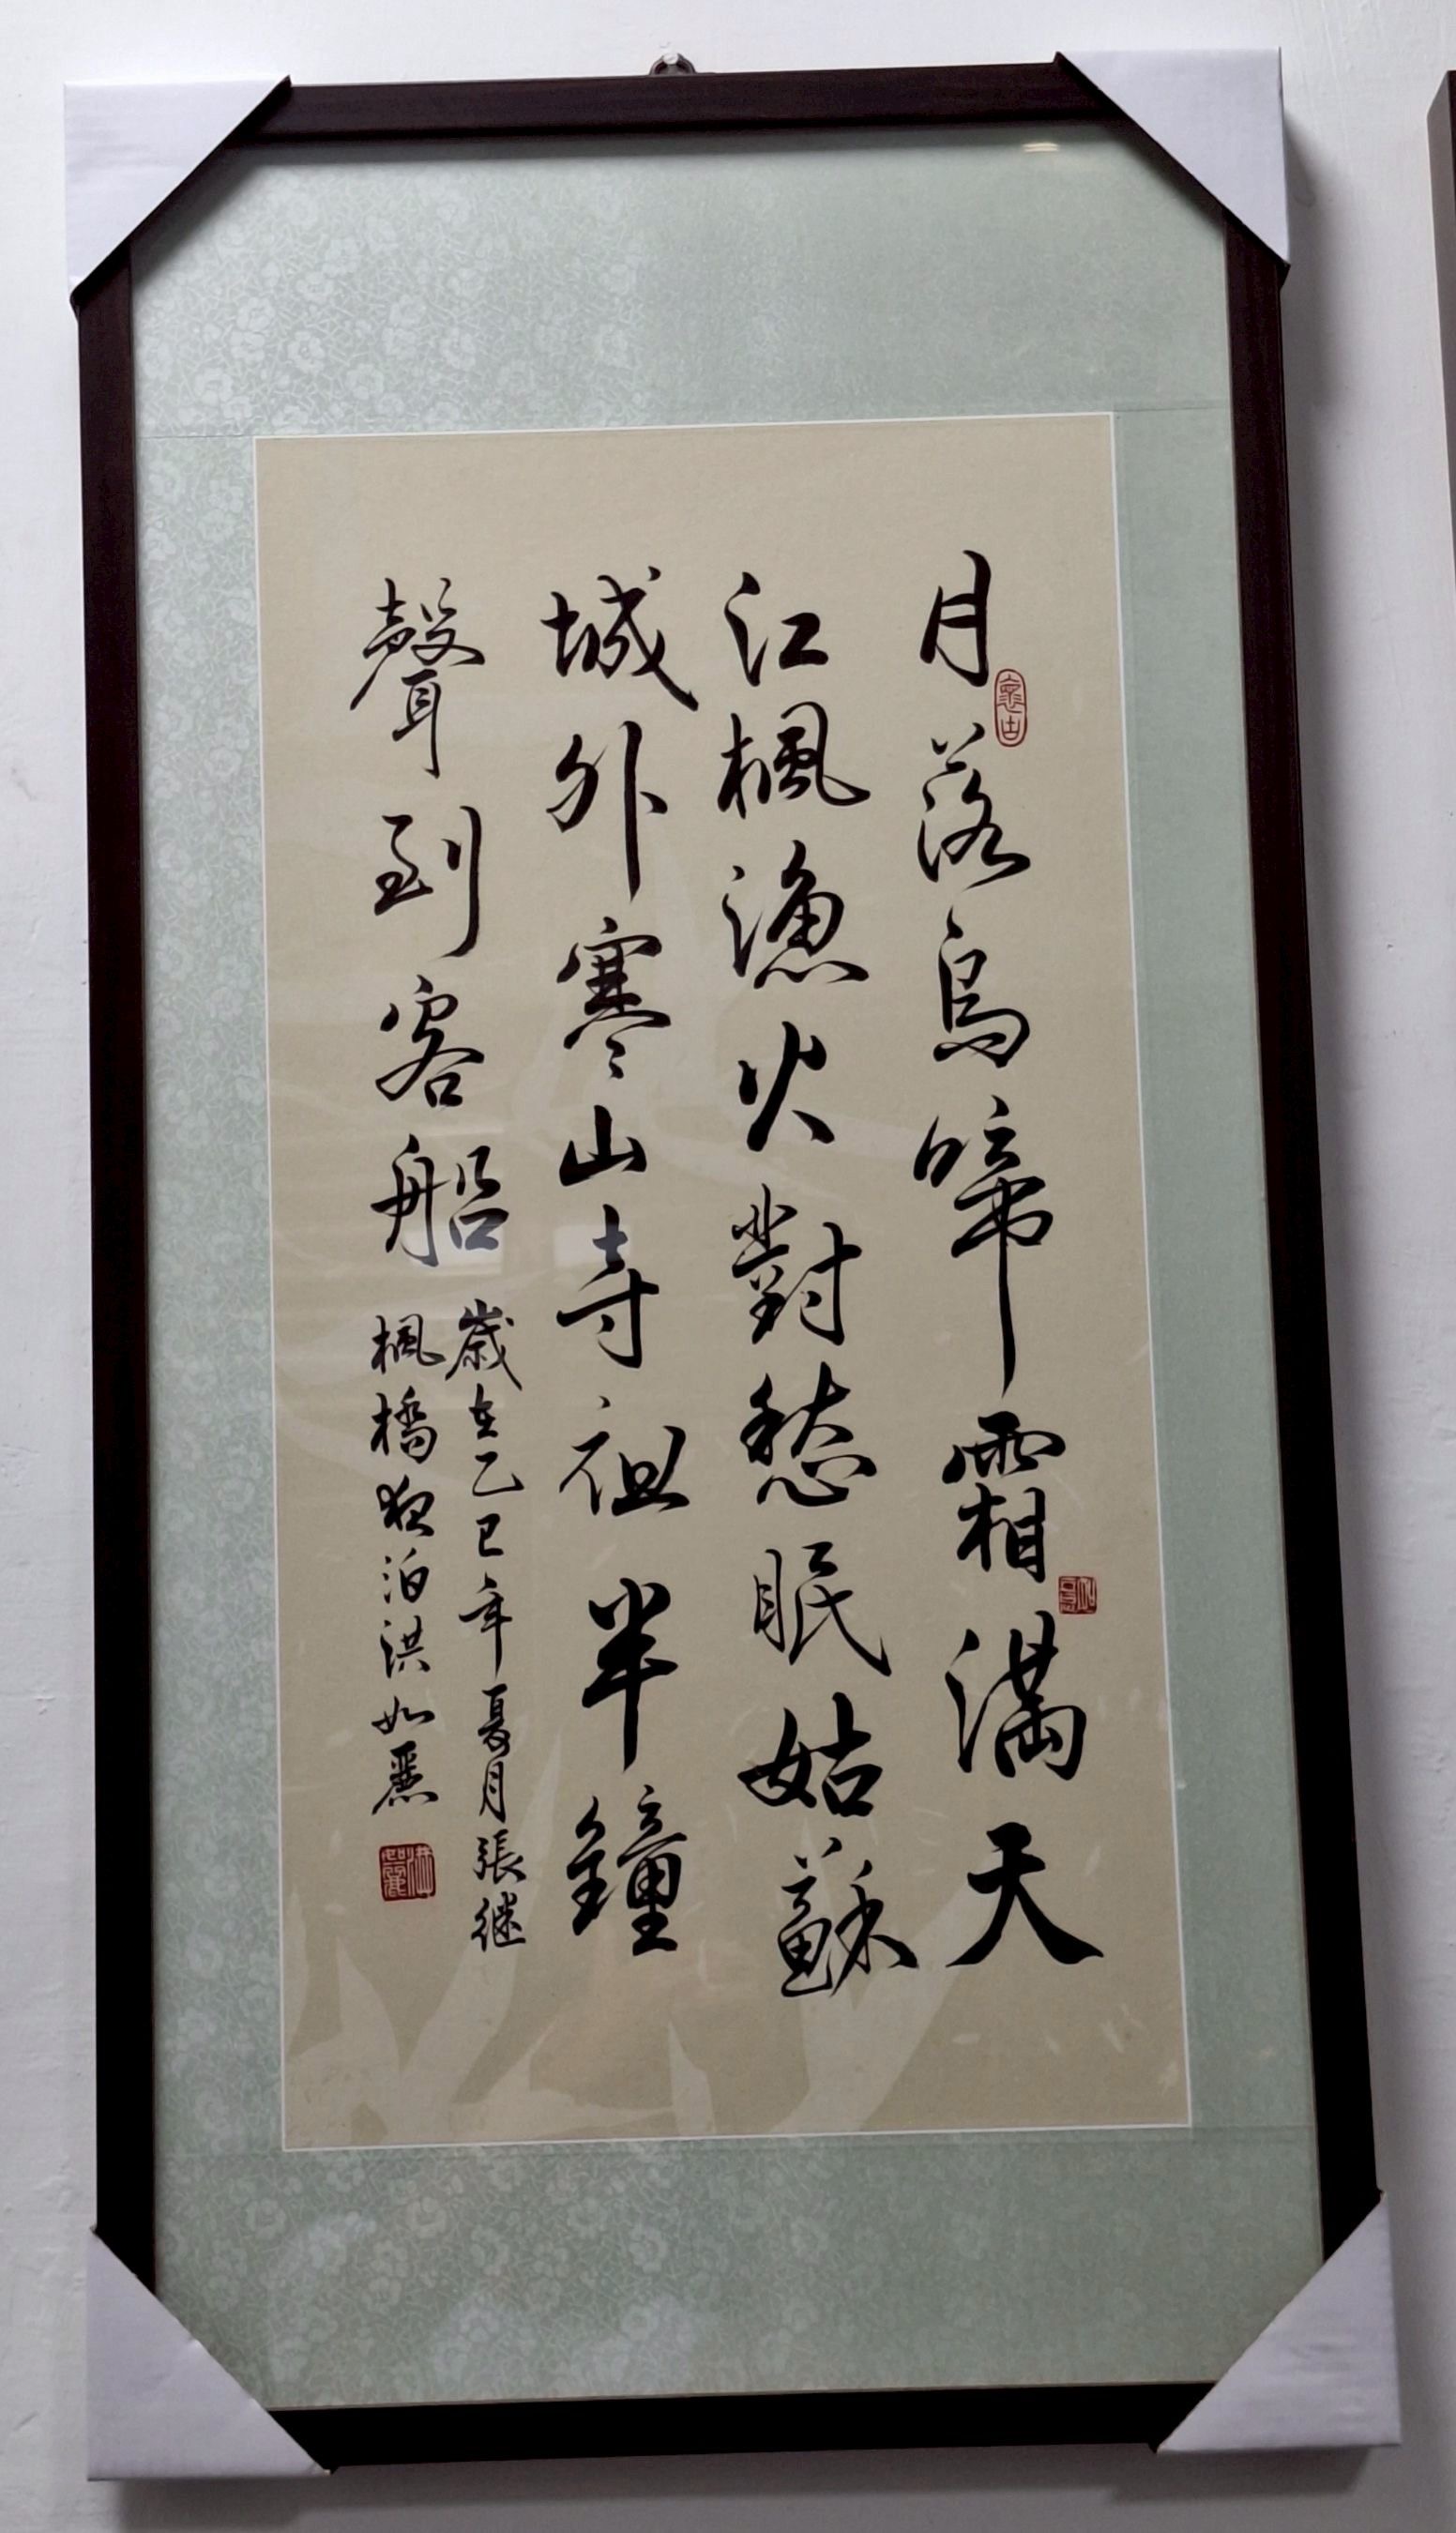 月落烏啼霜滿天
江楓漁火對愁眠姑蘇
城外寒山寺祖半鐘
聲到客船
歲在乙巳年夏月張继
楓橋夜泊洪如麗
洪如麗